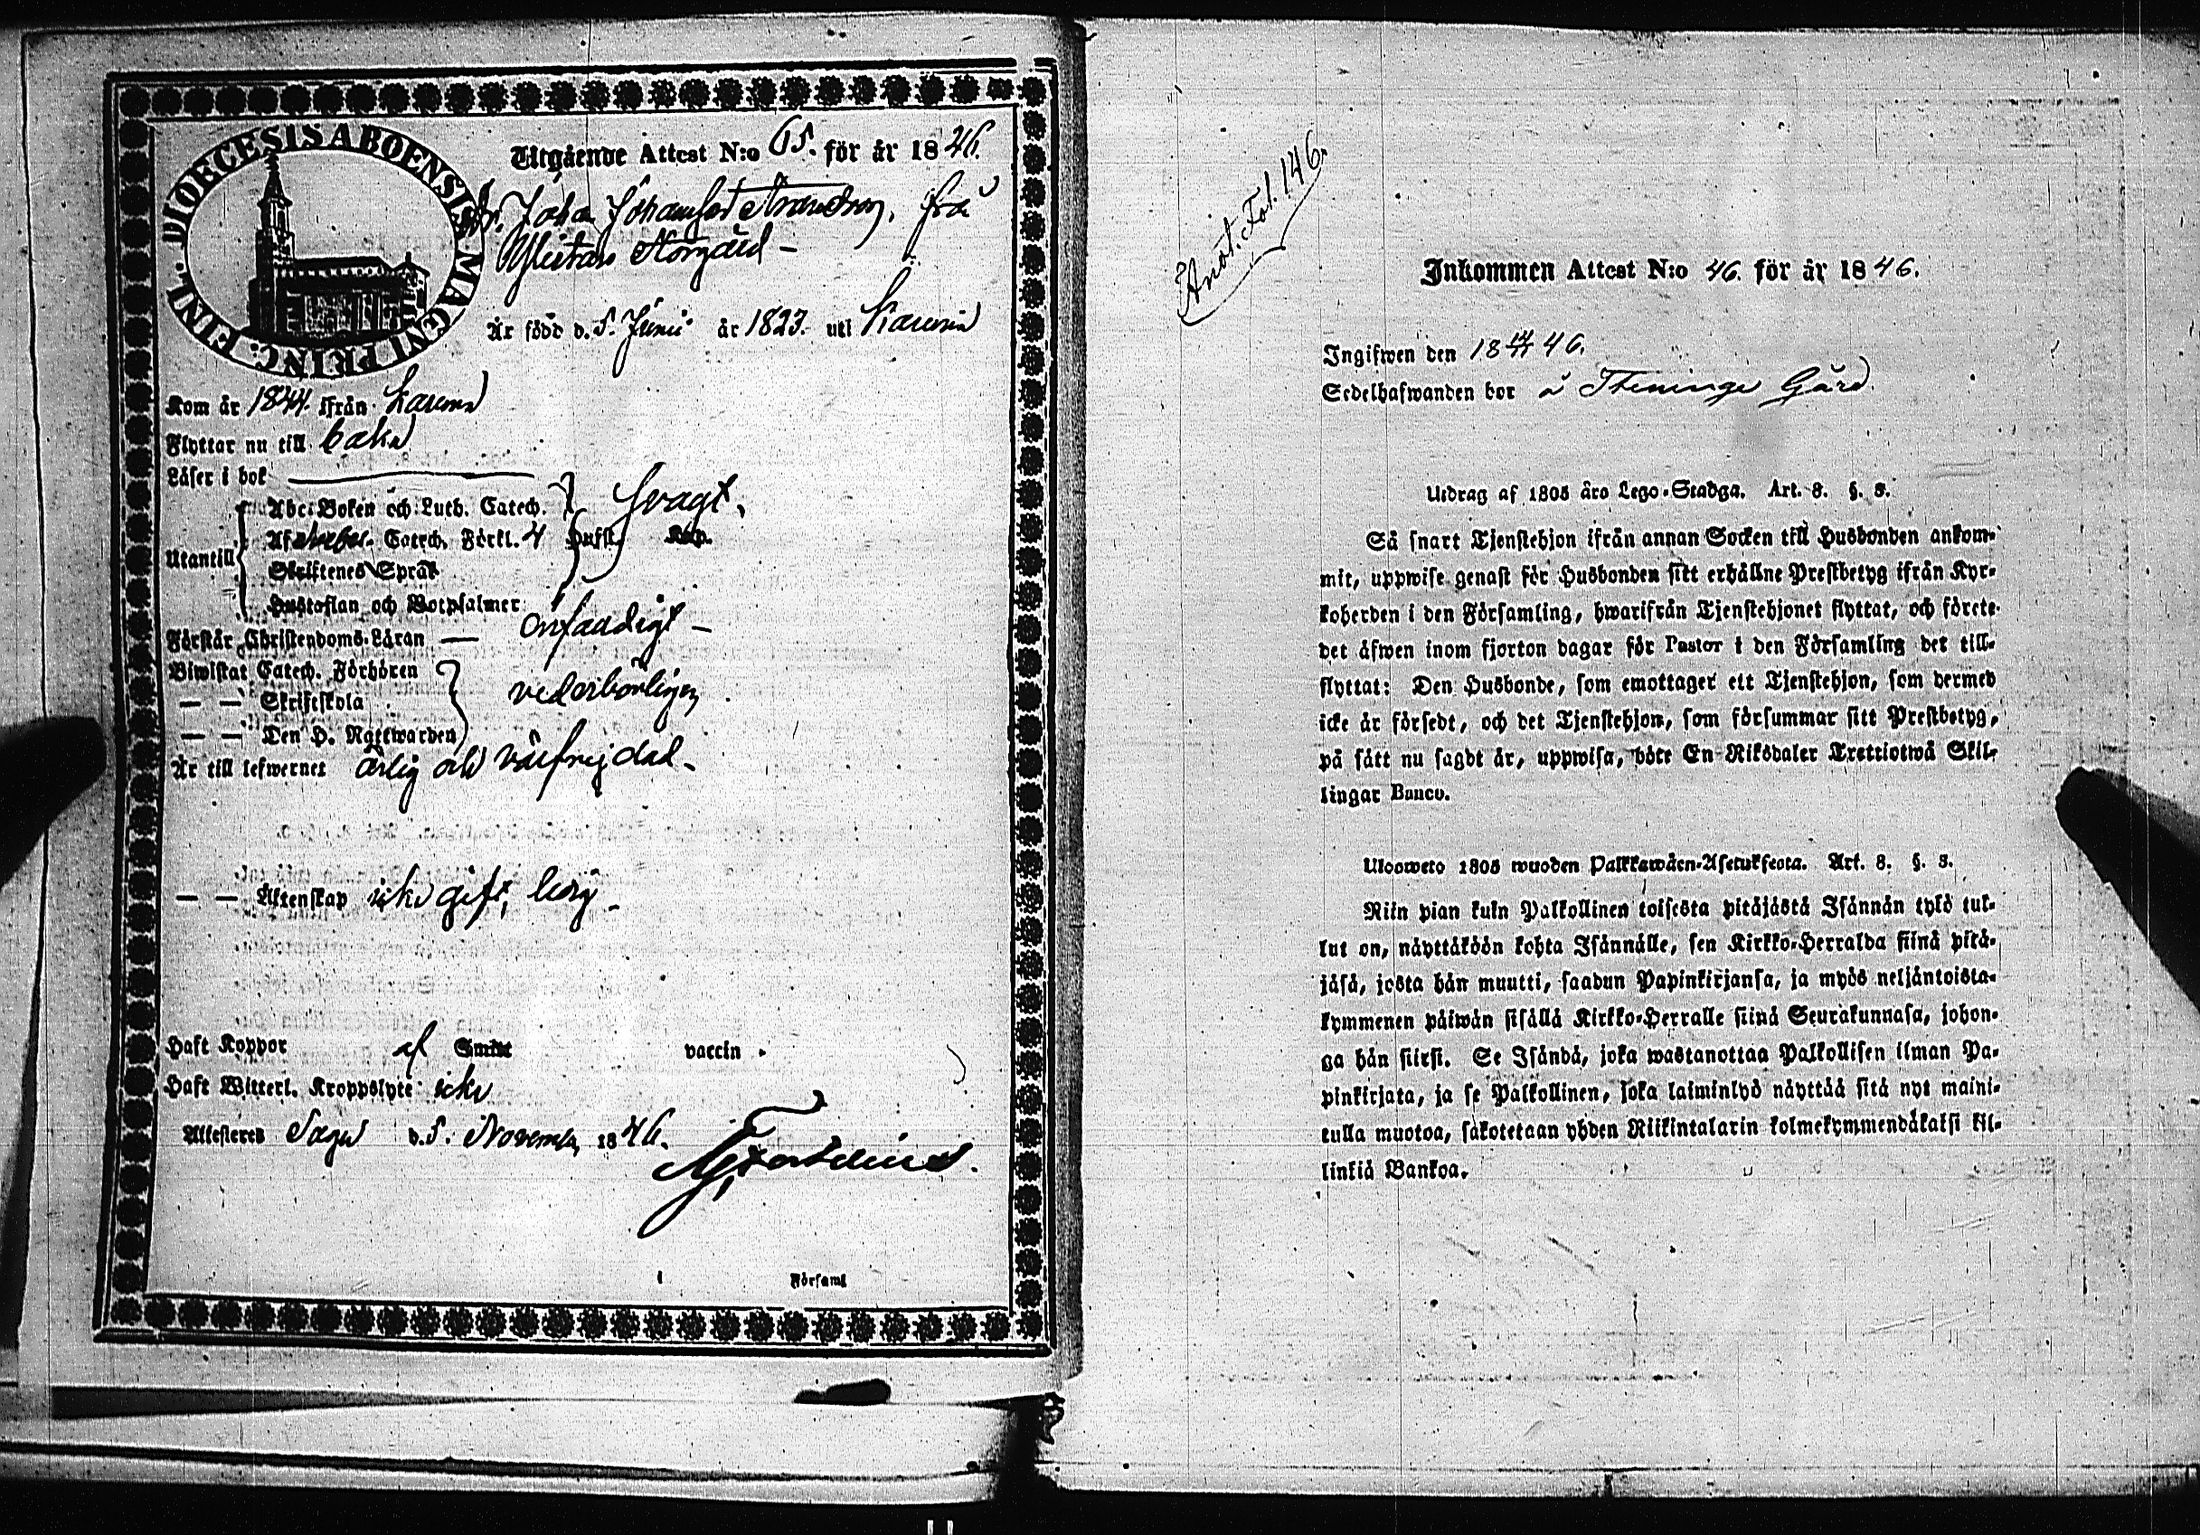 DIOECESIS ABOENSIS MAGNI PRINC. FINL.
Utgående Attest N:o 65. för år 1846.
Dr. Johan Johansson från
Norgård –
Är född d. 5. Junii år 1823. uti Karuna
Kom år 1844. ifrån Karuna
Flyttar nu till
Läser i bok
Abc-Boken och Luth. Catech.
svagt.
Utantill
Catech. Förkl. 4 Hufst. Kap.
Skriftenes Språk
Hustaflan och Botpsalmer
Förstår Christendoms-Läran — enfaldigt –
Biwistat Catech. Förhören
— — Skriftskola
vederbörligen
— — Den H. Nattwarden
Är till lefwernet ärlig och välfrejdad.
— — Äktenskap icke gift, ledig.
Haft Koppor af Smitt vaccin.
Haft Witterl. Kroppslyte icke
Attesteras Sagu d. 5. November 1846.
i Förfaml
Anot. Fol. 146.
Inkommen Attest N:o 46. för år 1846.
Ingifwen den 18 46.
Sedelhafwanden bor å Theninge Gård.
Utdrag af 1805 års Lego-Stadga. Art. 8. §. 3.
Så snart Tjenstehjon ifrån annan Socken till Husbonden ankom-
mit, uppwise genast för Husbonden sitt erhållne Prestbetyg ifrån Kyr-
koherden i den Församling, hwarifrån Tjenstehjonet flyttat, och förete
det äfwen inom fjorton dagar för Pastor i den Församling det till-
flyttat: Den Husbonde, som emottager ett Tjenstehjon, som dermed
icke är försedt, och det Tjenstehjon, som försummar sitt Prestbetyg,
på sätt nu sagdt är, uppwisa, böte En Riksdaler Trettiotwå Skil-
lingar Banco.
Uloswето 1805 wuoden Palkkawäen-Asetuksesta. Art. 8. §. 3.
Niin pian kuin Palkollinen toisesta pitäjästä Isännän tykö tul-
lut on, näyttäköön kohta Isännälle, sen Kirkko-Herralda siinä pitä-
jäsä, josta hän muutti, saadun Papinkirjansa, ja myös neljäntoista-
kymmenen päiwän sisällä Kirkko-Herralle siinä Seurakunnasa, johon-
ga hän siirsi. Se Isändä, joka wastanottaa Palkollisen ilman Pa-
pinkirjata, ja se Palkollinen, joka laiminlyö näyttää sitä nyt maini-
tulla muotoa, sakotetaan yhden Riikintalarin kolmekymmendäkaksi kil-
linkiä Bankoa.